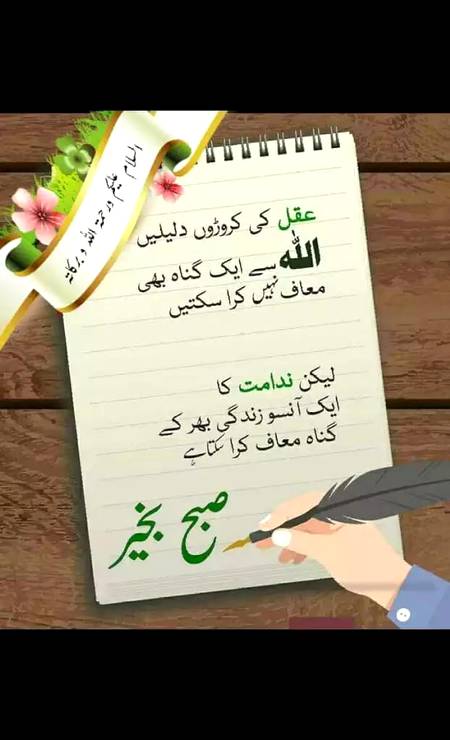 السلام علیکم ورحمۃ اللہ وبرکاتہ
عقل کی کروڑوں دلیلیں
اللہ سے ایک گناہ بھی
معاف نہیں کرا سکتیں
لیکن ندامت کا
ایک آنسو زندگی بھر کے
گناہ معاف کرا سکتا ہے
صبح بخیر